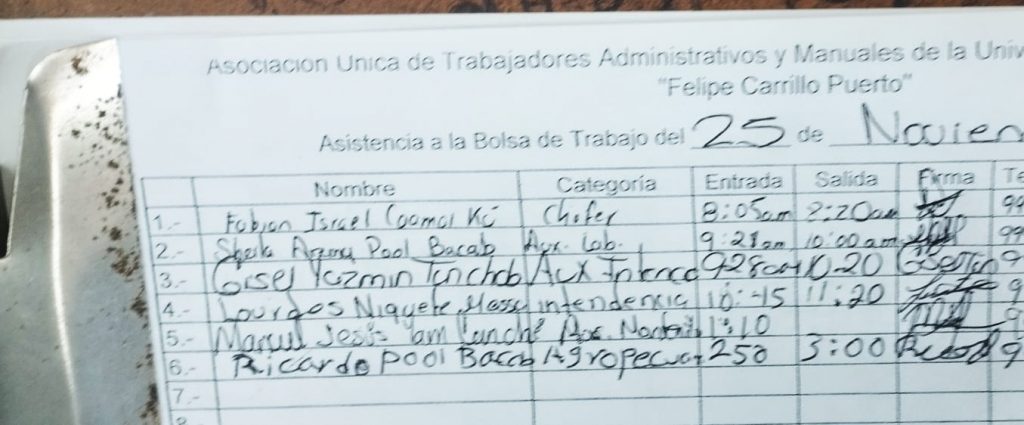 Asociación Única de Trabajadores Administrativos y Manuales de la Univ
"Felipe Carrillo Puerto"
Asistencia a la Bolsa de Trabajo del 25 de Noviem
Nombre Categoría Entrada Salida Firma Te
1.- Fabian Israel Coomol Ki Chofer 8:05am 8:20am 99
2.- Sheila Pool Bacab Aux. Lab. 9:21am 10:00am 99
3.- Gisel Yazmin Aux 928am 10-20 9
4.- Lourdes intendencia 10:45 11:20 9
5.- Manuel Jesús Yam Canché Aux. 1:10 9
6.- Ricardo Pool Bacab Agropecuar 250 3:00 9
7.-
8.-